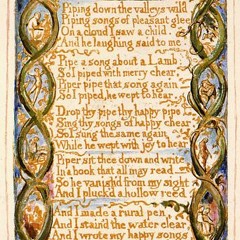 Piping down the valleys wild
Piping songs of pleasant glee
On a cloud I saw a child.
And he laughing said to me.
Pipe a song about a Lamb:
So I piped with merry chear,
Piper pipe that song again
So I piped, he wept to hear.
Drop thy pipe thy happy pipe
Sing thy songs of happy chear
So I sung the same again
While he wept with joy to hear
Piper sit thee down and write
In a book that all may read
So he vanish'd from my sight
And I pluck'd a hollow reed
And I made a rural pen
And I stain'd the water clear
And I wrote my happy songs